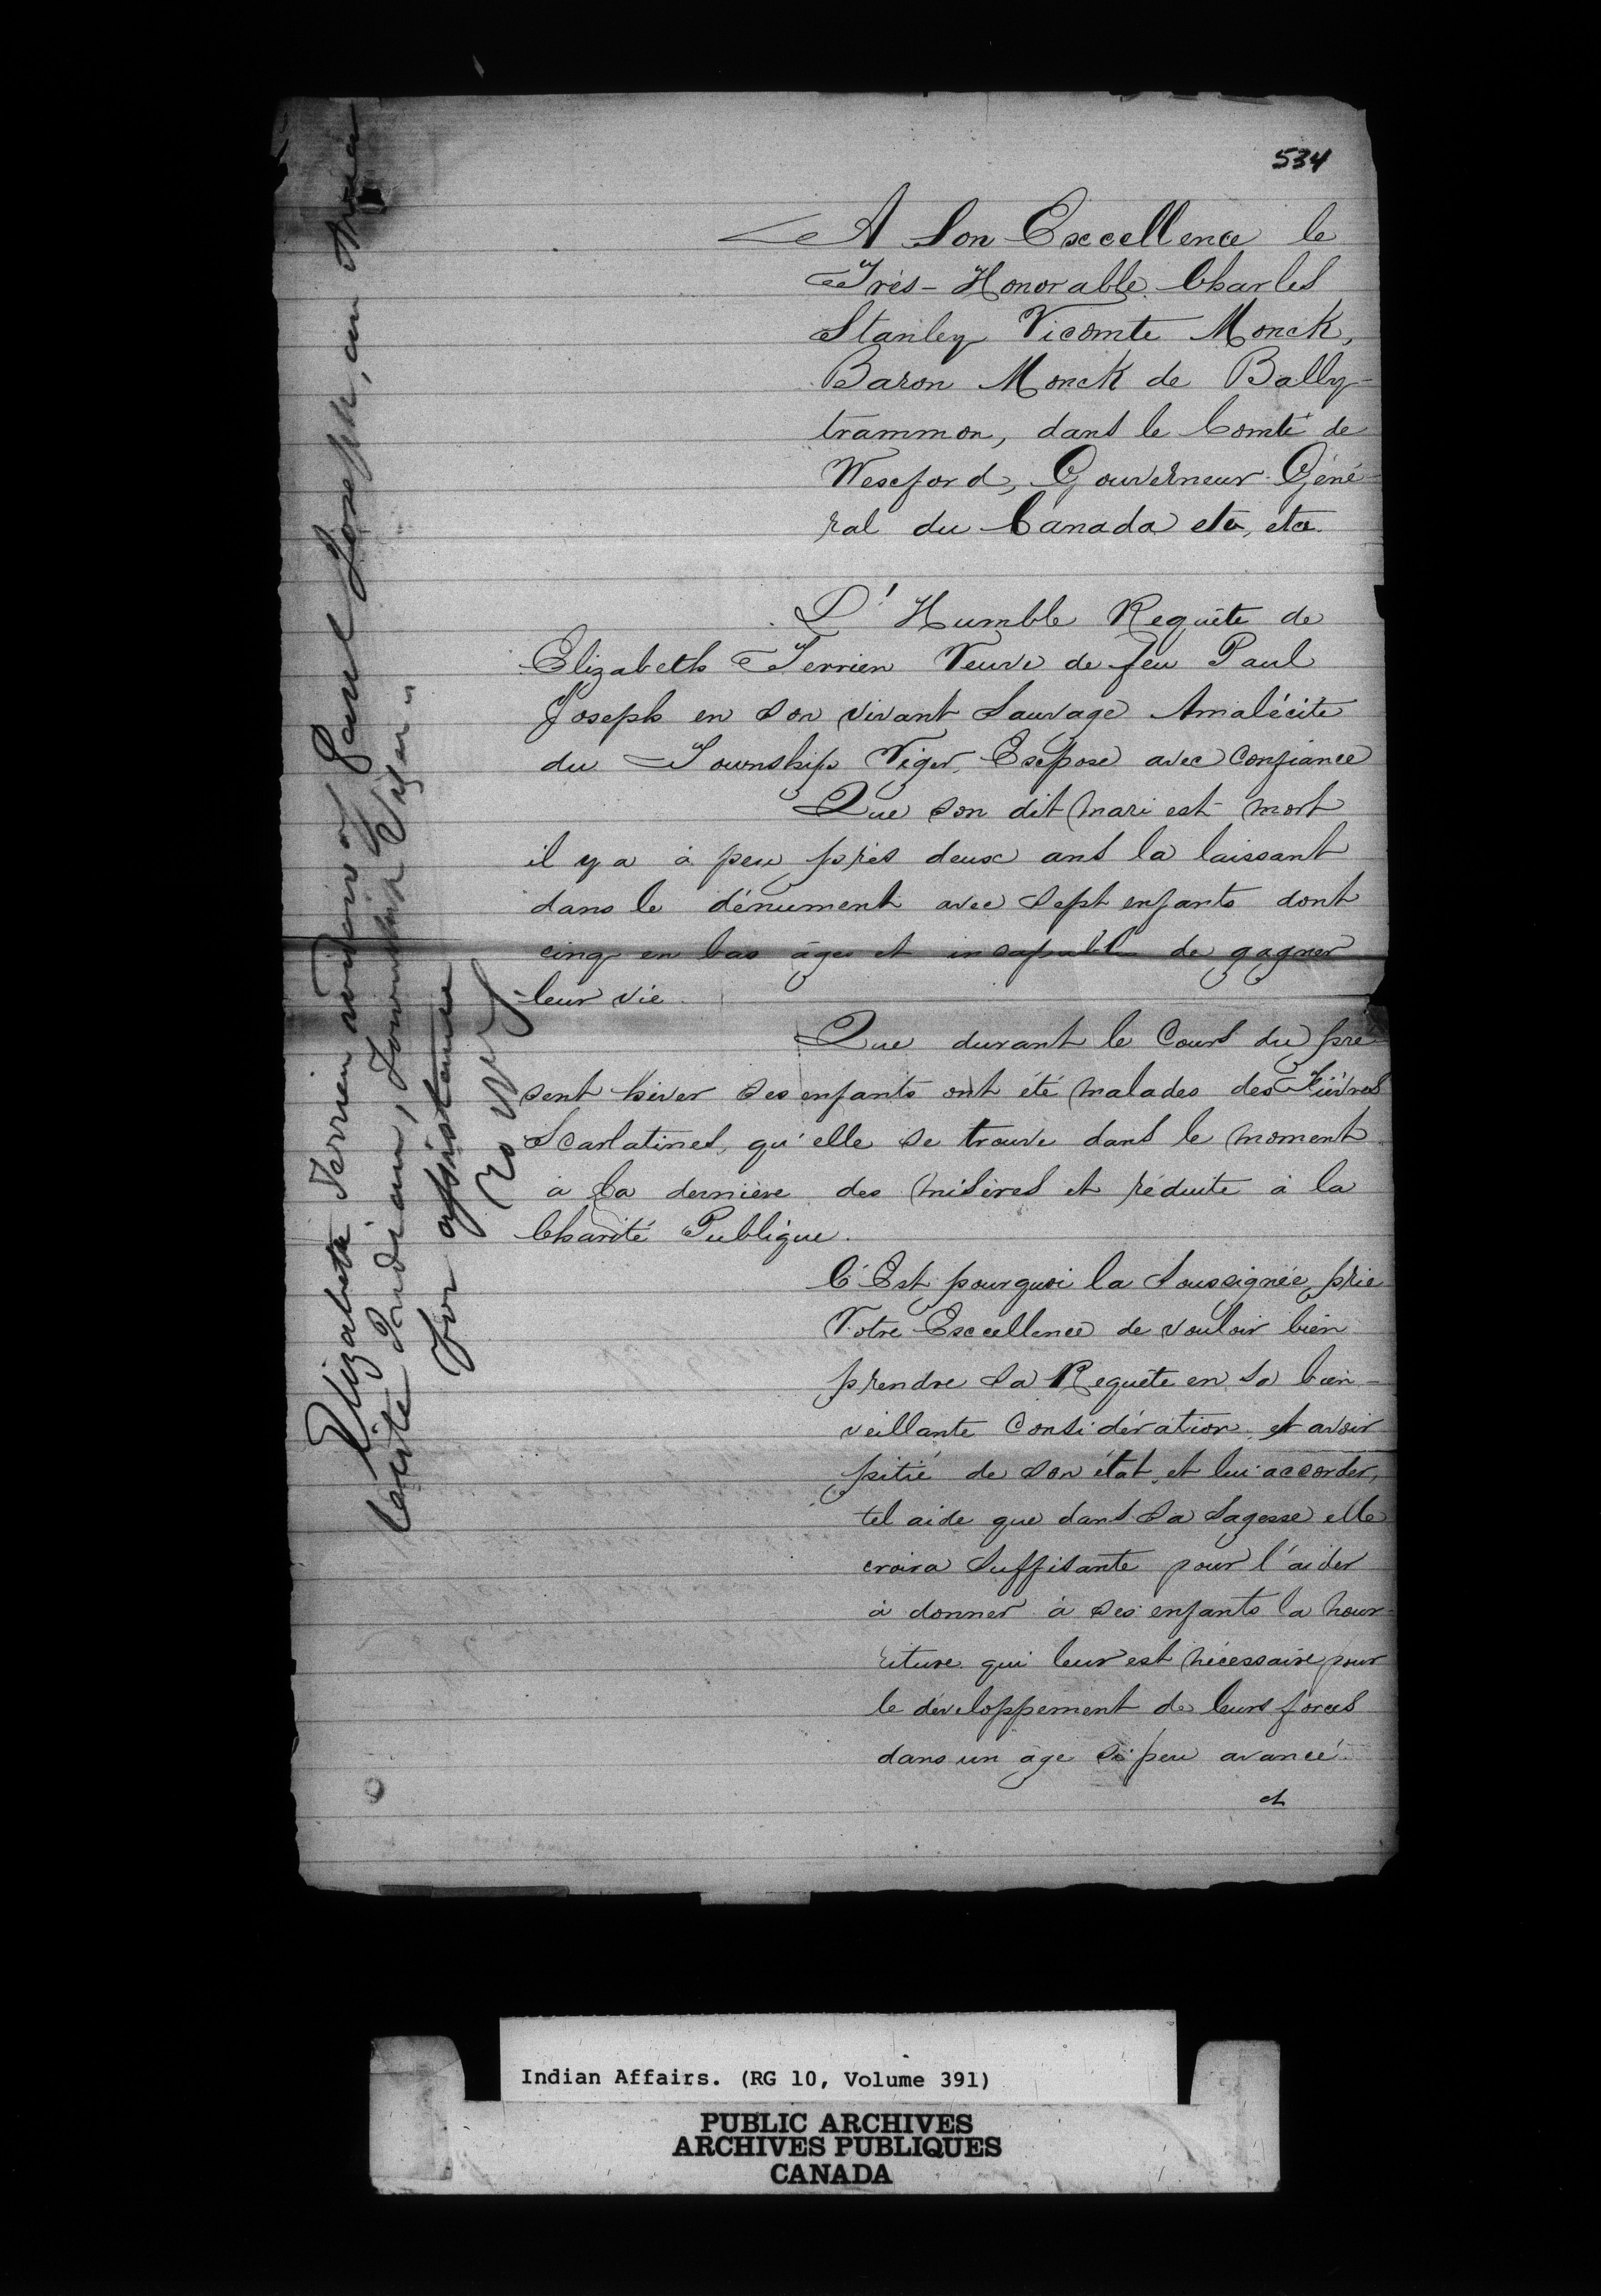 534
A Son Excellence le
Très-Honorable Charles
Stanley Vicomte Monck,
Baron Monck de Bally-
trammon, dans le Comté de
Wexford, Gouverneur Géné-
ral du Canada etc, etc.
L'Humble Requête de
Elizabeth Terrien Veuve de feu Paul
Joseph en son vivant Sauvage Amalécite
du Township Viger, Expose avec confiance
Que son dit mari est mort
il y a à peu près deux ans la laissant
dans le dénument avec sept enfants dont
cinq en bas âge et incapable de gagner
leur vie.
Que durant le Cours du pré
sent hiver ses enfants ont été malades des Fièvres
Scarlatines, qu'elle se trouve dans le moment
à la dernière des misères et réduite à la
Charité Publique.
C'Est pourquoi la Soussignée prie
Votre Excellence de vouloir bien
prendre sa Requête en sa bien-
veillante Considération et avoir
pitié de son état et lui accorder,
tel aide que dans sa sagesse elle
croira suffisante pour l'aider
à donner à ses enfants la nour-
riture qui leur est nécessaire pour
le développement de leurs forces
dans un âge si peu avancé.
et
Elizabeth Terrien widow of Paul Joseph, an Ama
lécite Indian, Township Viger.
for assistance
Indian Affairs. (RG 10, Volume 391)
PUBLIC ARCHIVES
ARCHIVES PUBLIQUES
CANADA